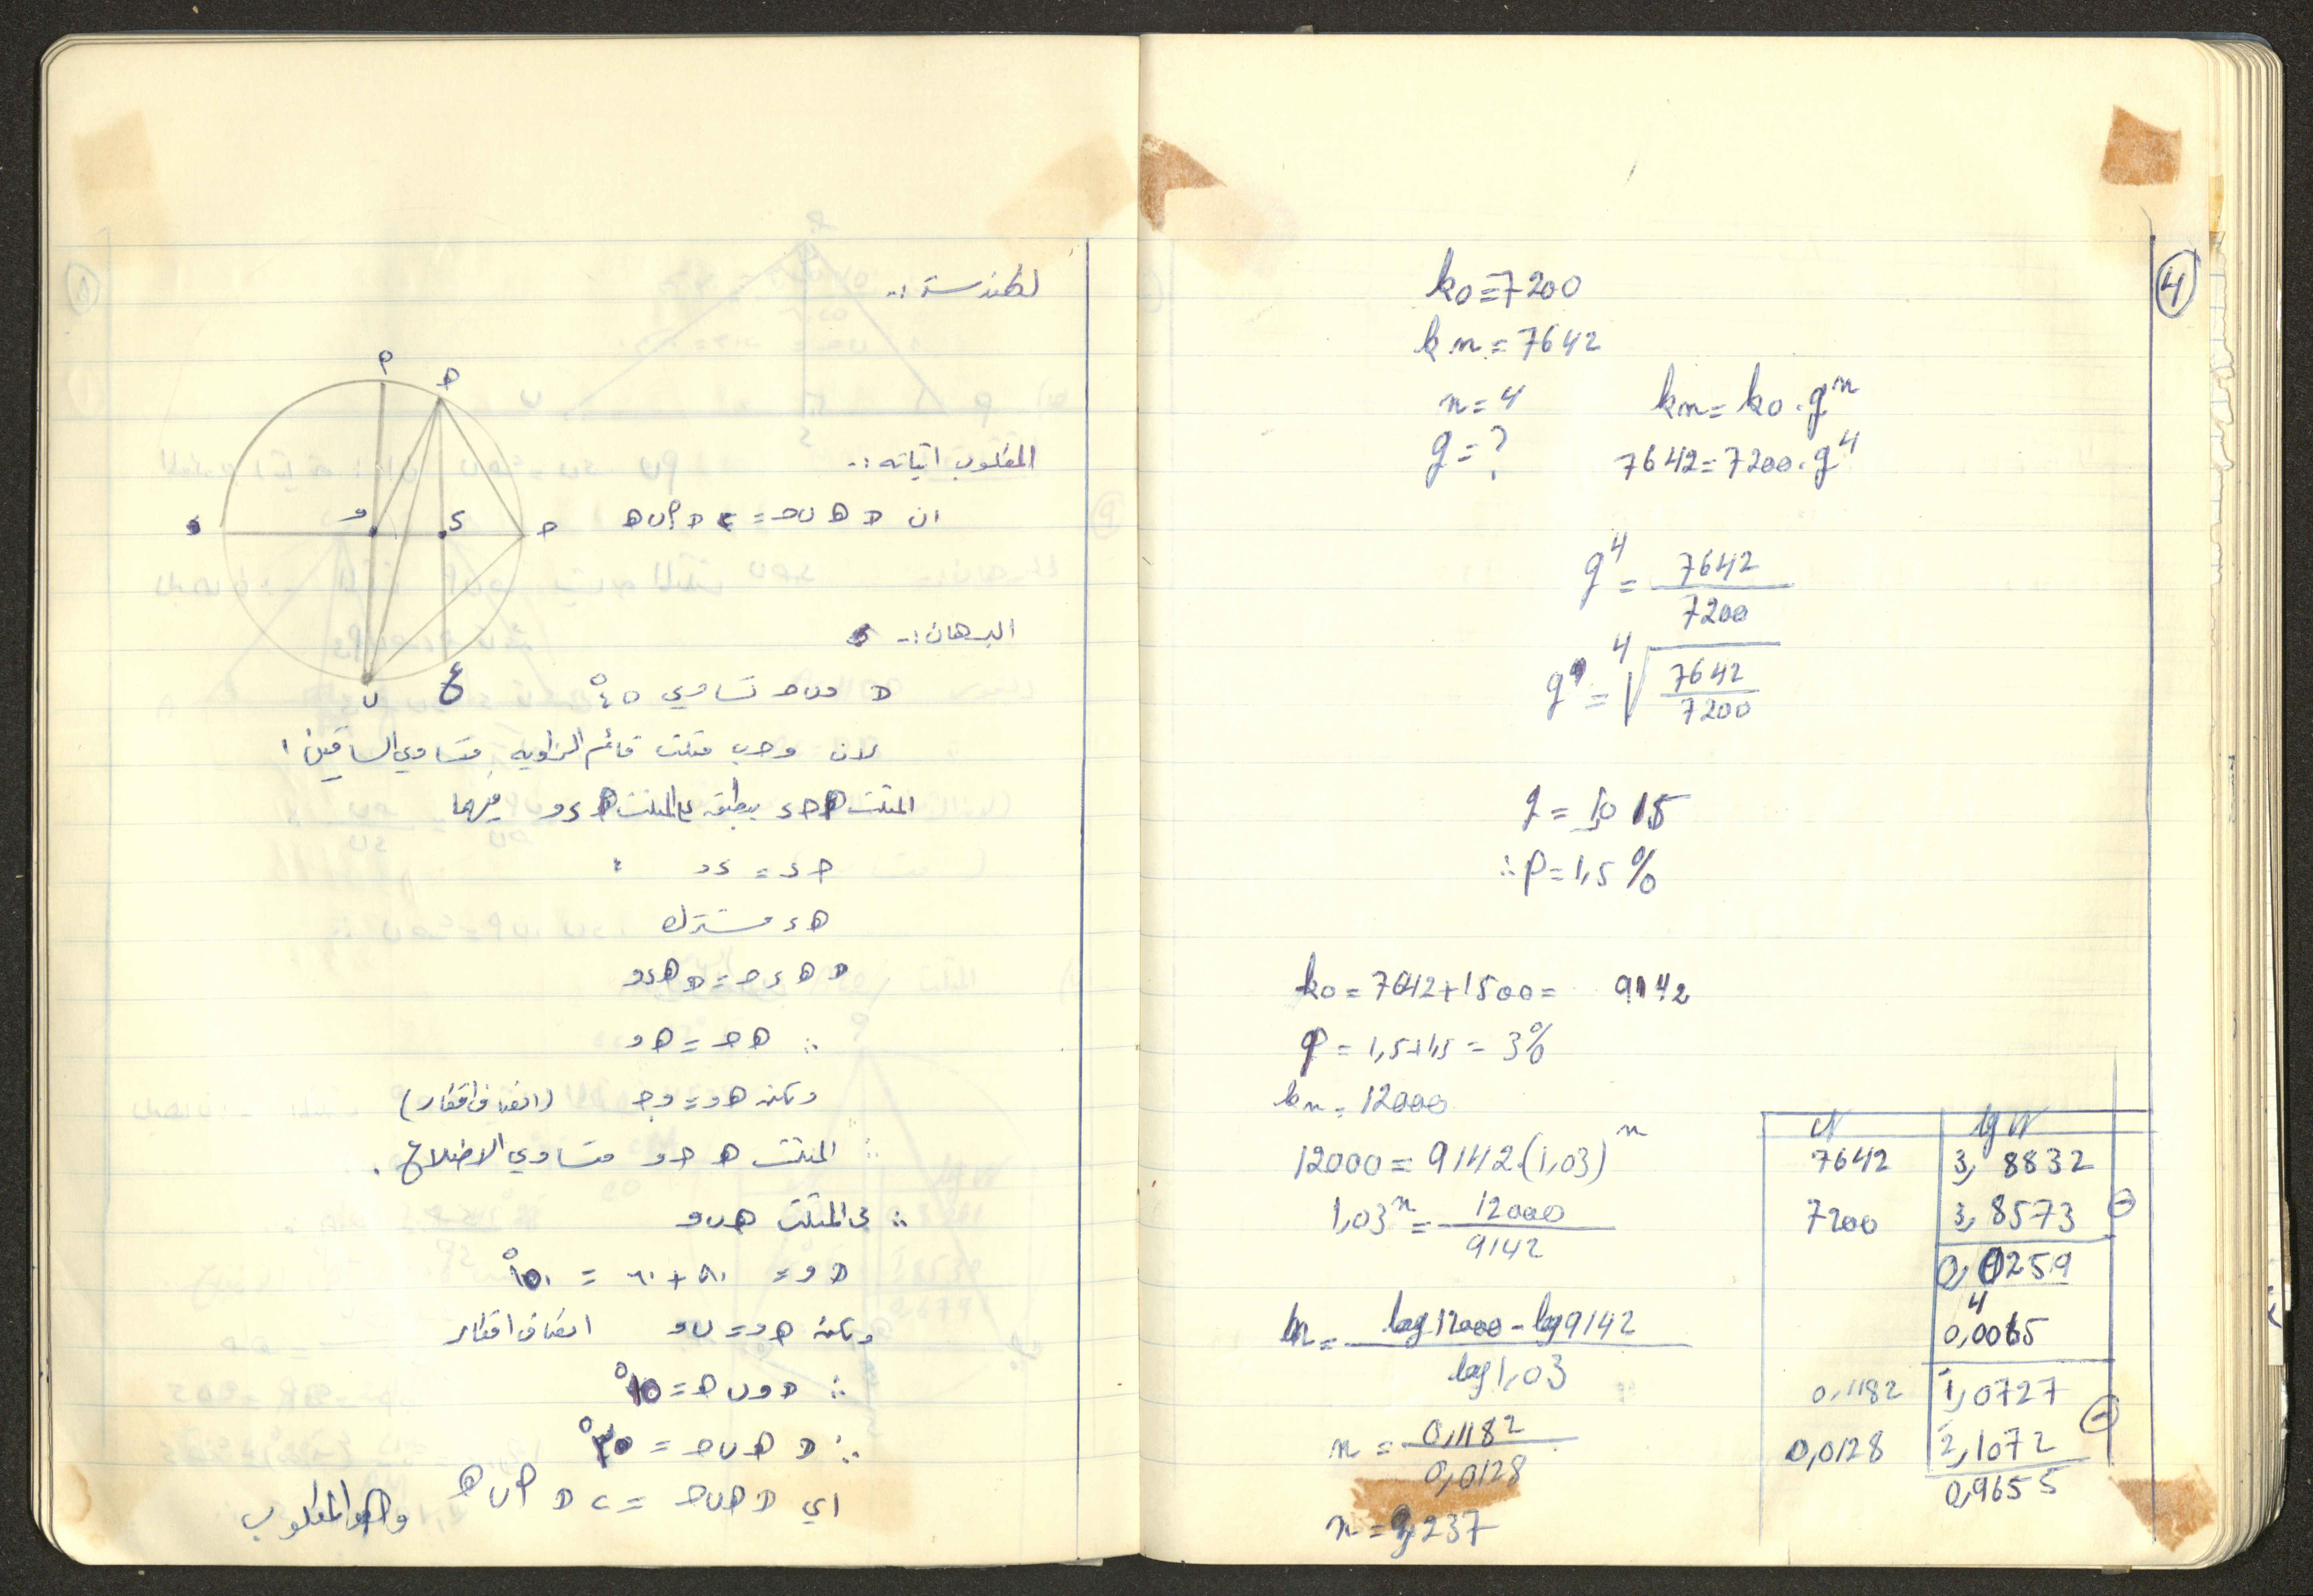 الهندسة :-
المطلوب اثباته :-
ان ∢ هـ ب جـ = ٢ ∢ أ ب هـ
البرهان :-
∢ و ب جـ تساوي ٤٥°
لان و جـ ب مثلث قائم الزاويه متساوي الساقين
المثلث هـ جـ د ينطبق على المثلث هـ د و فيهما
جـ د = د و
هـ د مشترك
∢ هـ د جـ = ∢ هـ د و
∴ هـ جـ = هـ و
ولكن هـ و = و جـ (انصاف اقطار)
∴ المثلث هـ جـ و متساوي الاضلاع .
∴ في المثلث هـ ب و
∢ و = ٩٠ + ٦٠ = ١٥٠°
ولكن هـ و = ب و انصاف اقطار
∴ ∢ و ب هـ = ١٥°
∴ ∢ هـ ب جـ = ٣٠°
اي ∢ هـ ب جـ = ٢ ∢ أ ب هـ وهو المطلوب
أ
هـ
و
د
جـ
ب
ع
4
k0 = 7200
kn = 7642
n = 4
kn = k0 . q^n
q = ?
7642 = 7200 . q^4
q^4 = 7642 / 7200
q = ⁴√(7642 / 7200)
q = 1,015
∴ p = 1,5 %
k0 = 7642 + 1500 = 9142
p = 1,5 + 1,5 = 3%
kn = 12000
12000 = 9142 . (1,03)^n
1,03^n = 12000 / 9142
n = log 12000 - log 9142 / log 1,03
n = 0,1182 / 0,0128
n = 9,237
N lg N
7642 3, 8832
7200 3, 8573 -
0, 0259
4
0,0065
0,1182 1̄,0727
0,0128 2̄,1072 -
0,9655